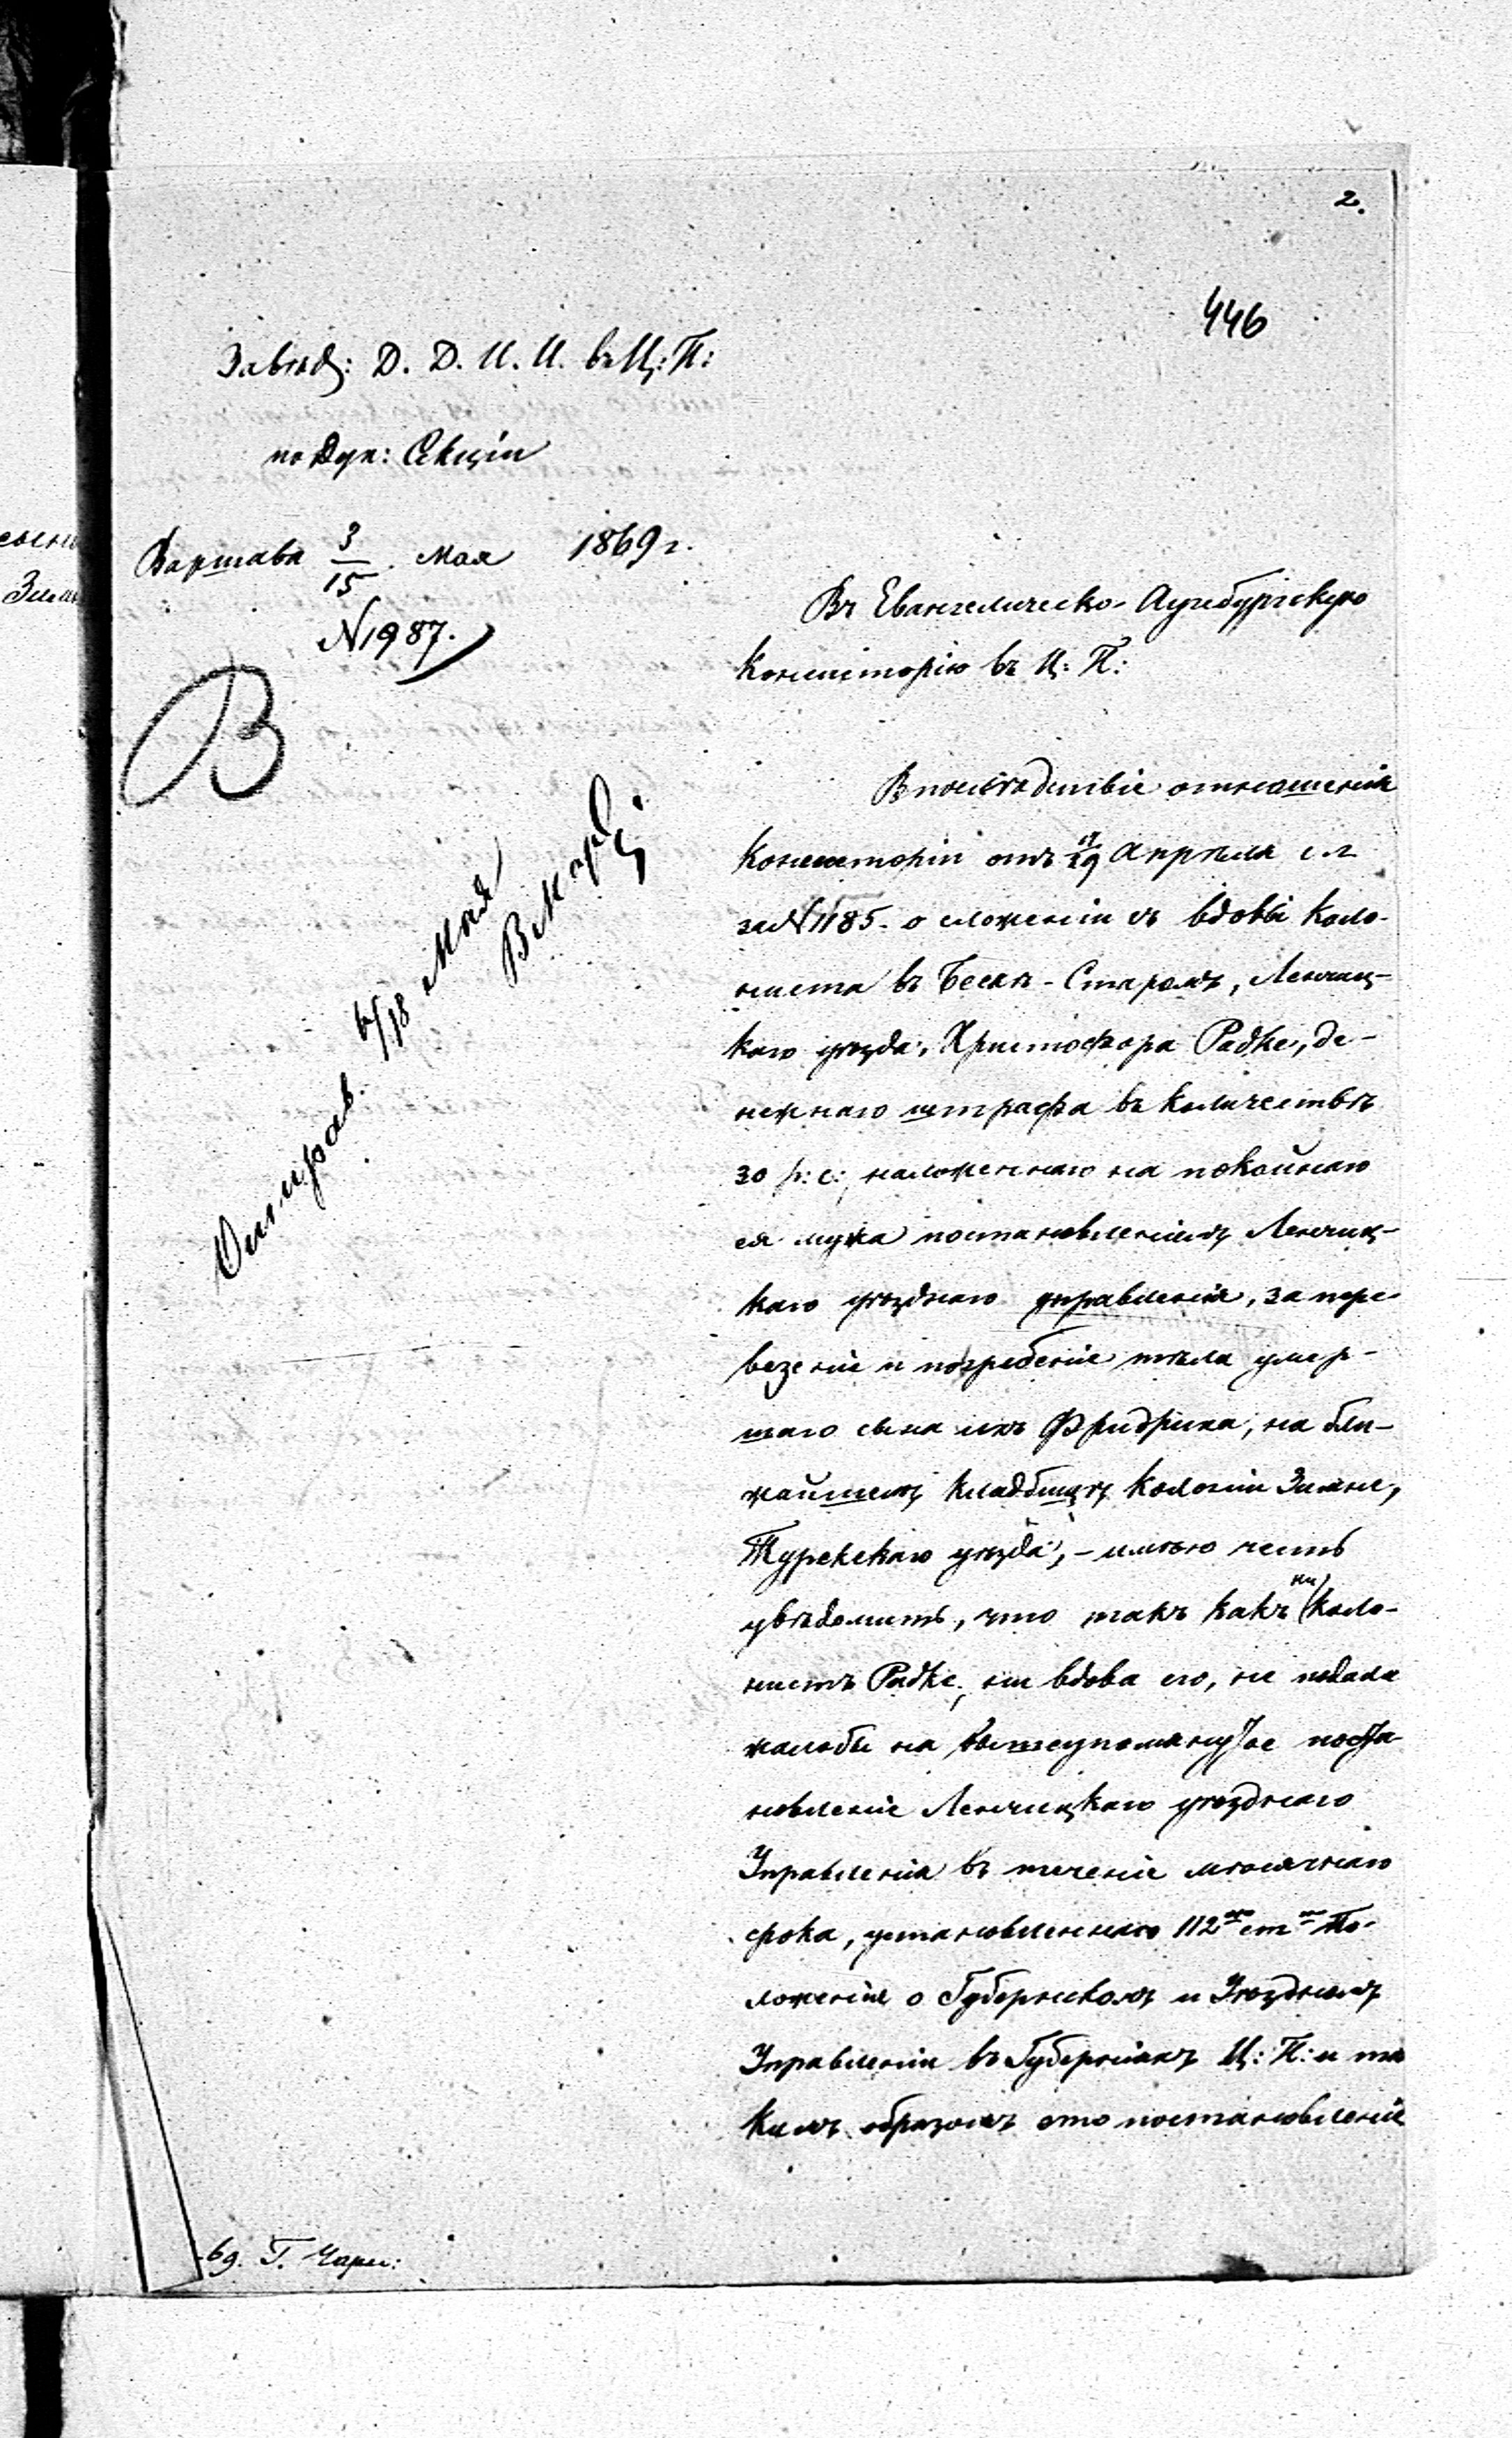 2.
446
Завѣд: Д. Д. И. И. въ Ц: П:
по Дух: Секціи
Варшава 3/15 Мая 1869 г.
N 1987.
В
Отправ. 6/18 Мая
Въ Евангелическо-Аугсбургскую
Консисторію въ Ц: П:
Впослѣдствіе отношенія
Консисторіи отъ 17/29 Апрѣля с. г.
за N 1185. о сложеніи съ вдовы коло-
ниста въ Бескѣ-Старомъ, Ленчиц-
каго уѣзда, Христофора Радке, де-
нежнаго штрафа въ количествѣ
30 р: с:, наложеннаго на покойнаго
ея мужа постановленіемъ Ленчиц-
каго уѣзднаго управленія, за пере-
везеніе и погребеніе тѣла умер-
шаго сына ихъ Фридриха, на бли-
жайшемъ кладбищѣ колоніи
Турекскаго уѣзда, - имѣю честь
увѣдомить, что такъ какъ ни коло-
нистъ Радке, ни вдова его, не подала
жалобы на вышеупомянутое поста-
новленіе Ленчицкаго уѣзднаго
Управленія въ теченіе мѣсячнаго
срока, установленнаго 112ою ст. По-
ложенія о Губернскомъ и Уѣздномъ
Управленіи въ Губерніяхъ Ц: П: и та
кимъ образомъ это постановленіе